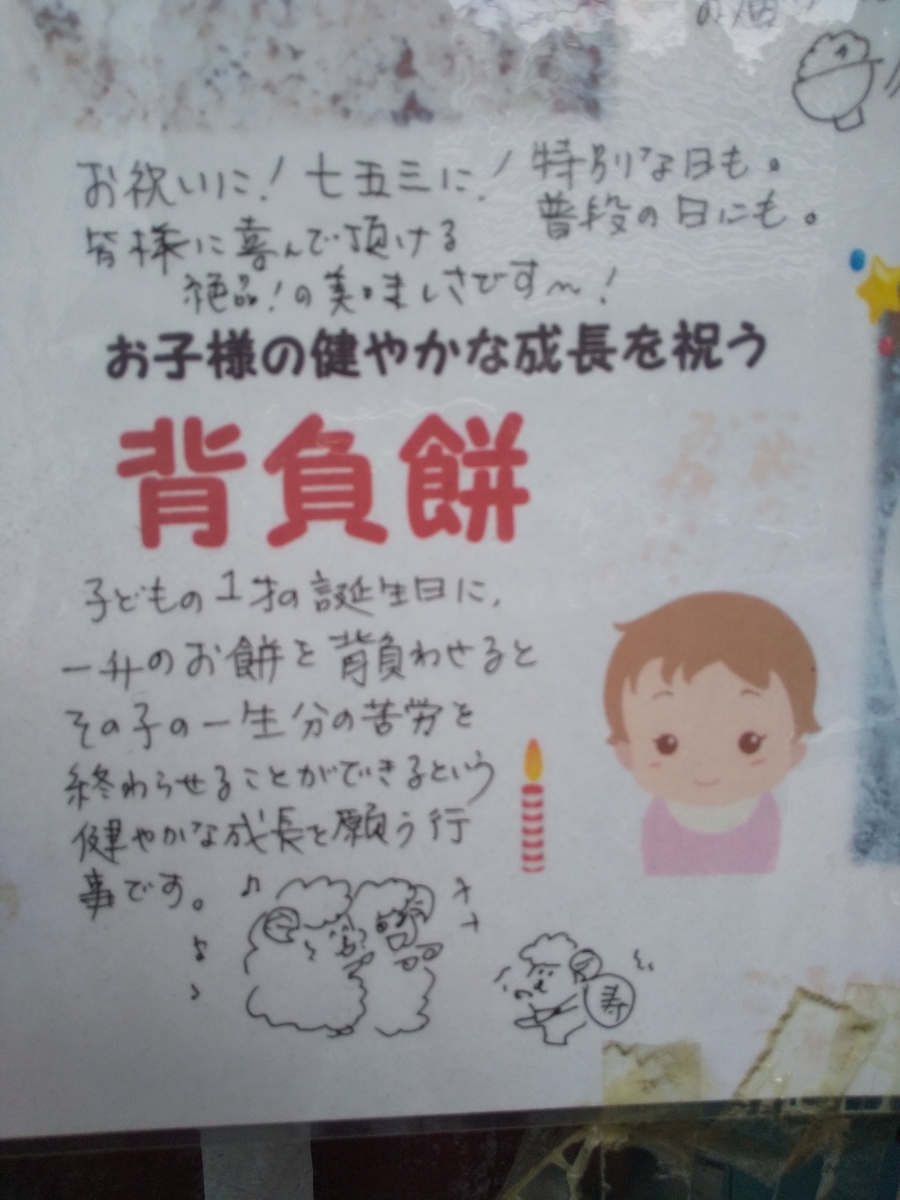 の酒
お祝いに！七五三に！
特別な日も。
普段の日にも。
皆様に喜んで頂ける
絶品！の美味しさです〜！
お子様の健やかな成長を祝う
背負餅
子どもの1才の誕生日に、
一升のお餅を背負わせると
その子の一生分の苦労を
終わらせることができるという
健やかな成長を願う行
事です。
寿